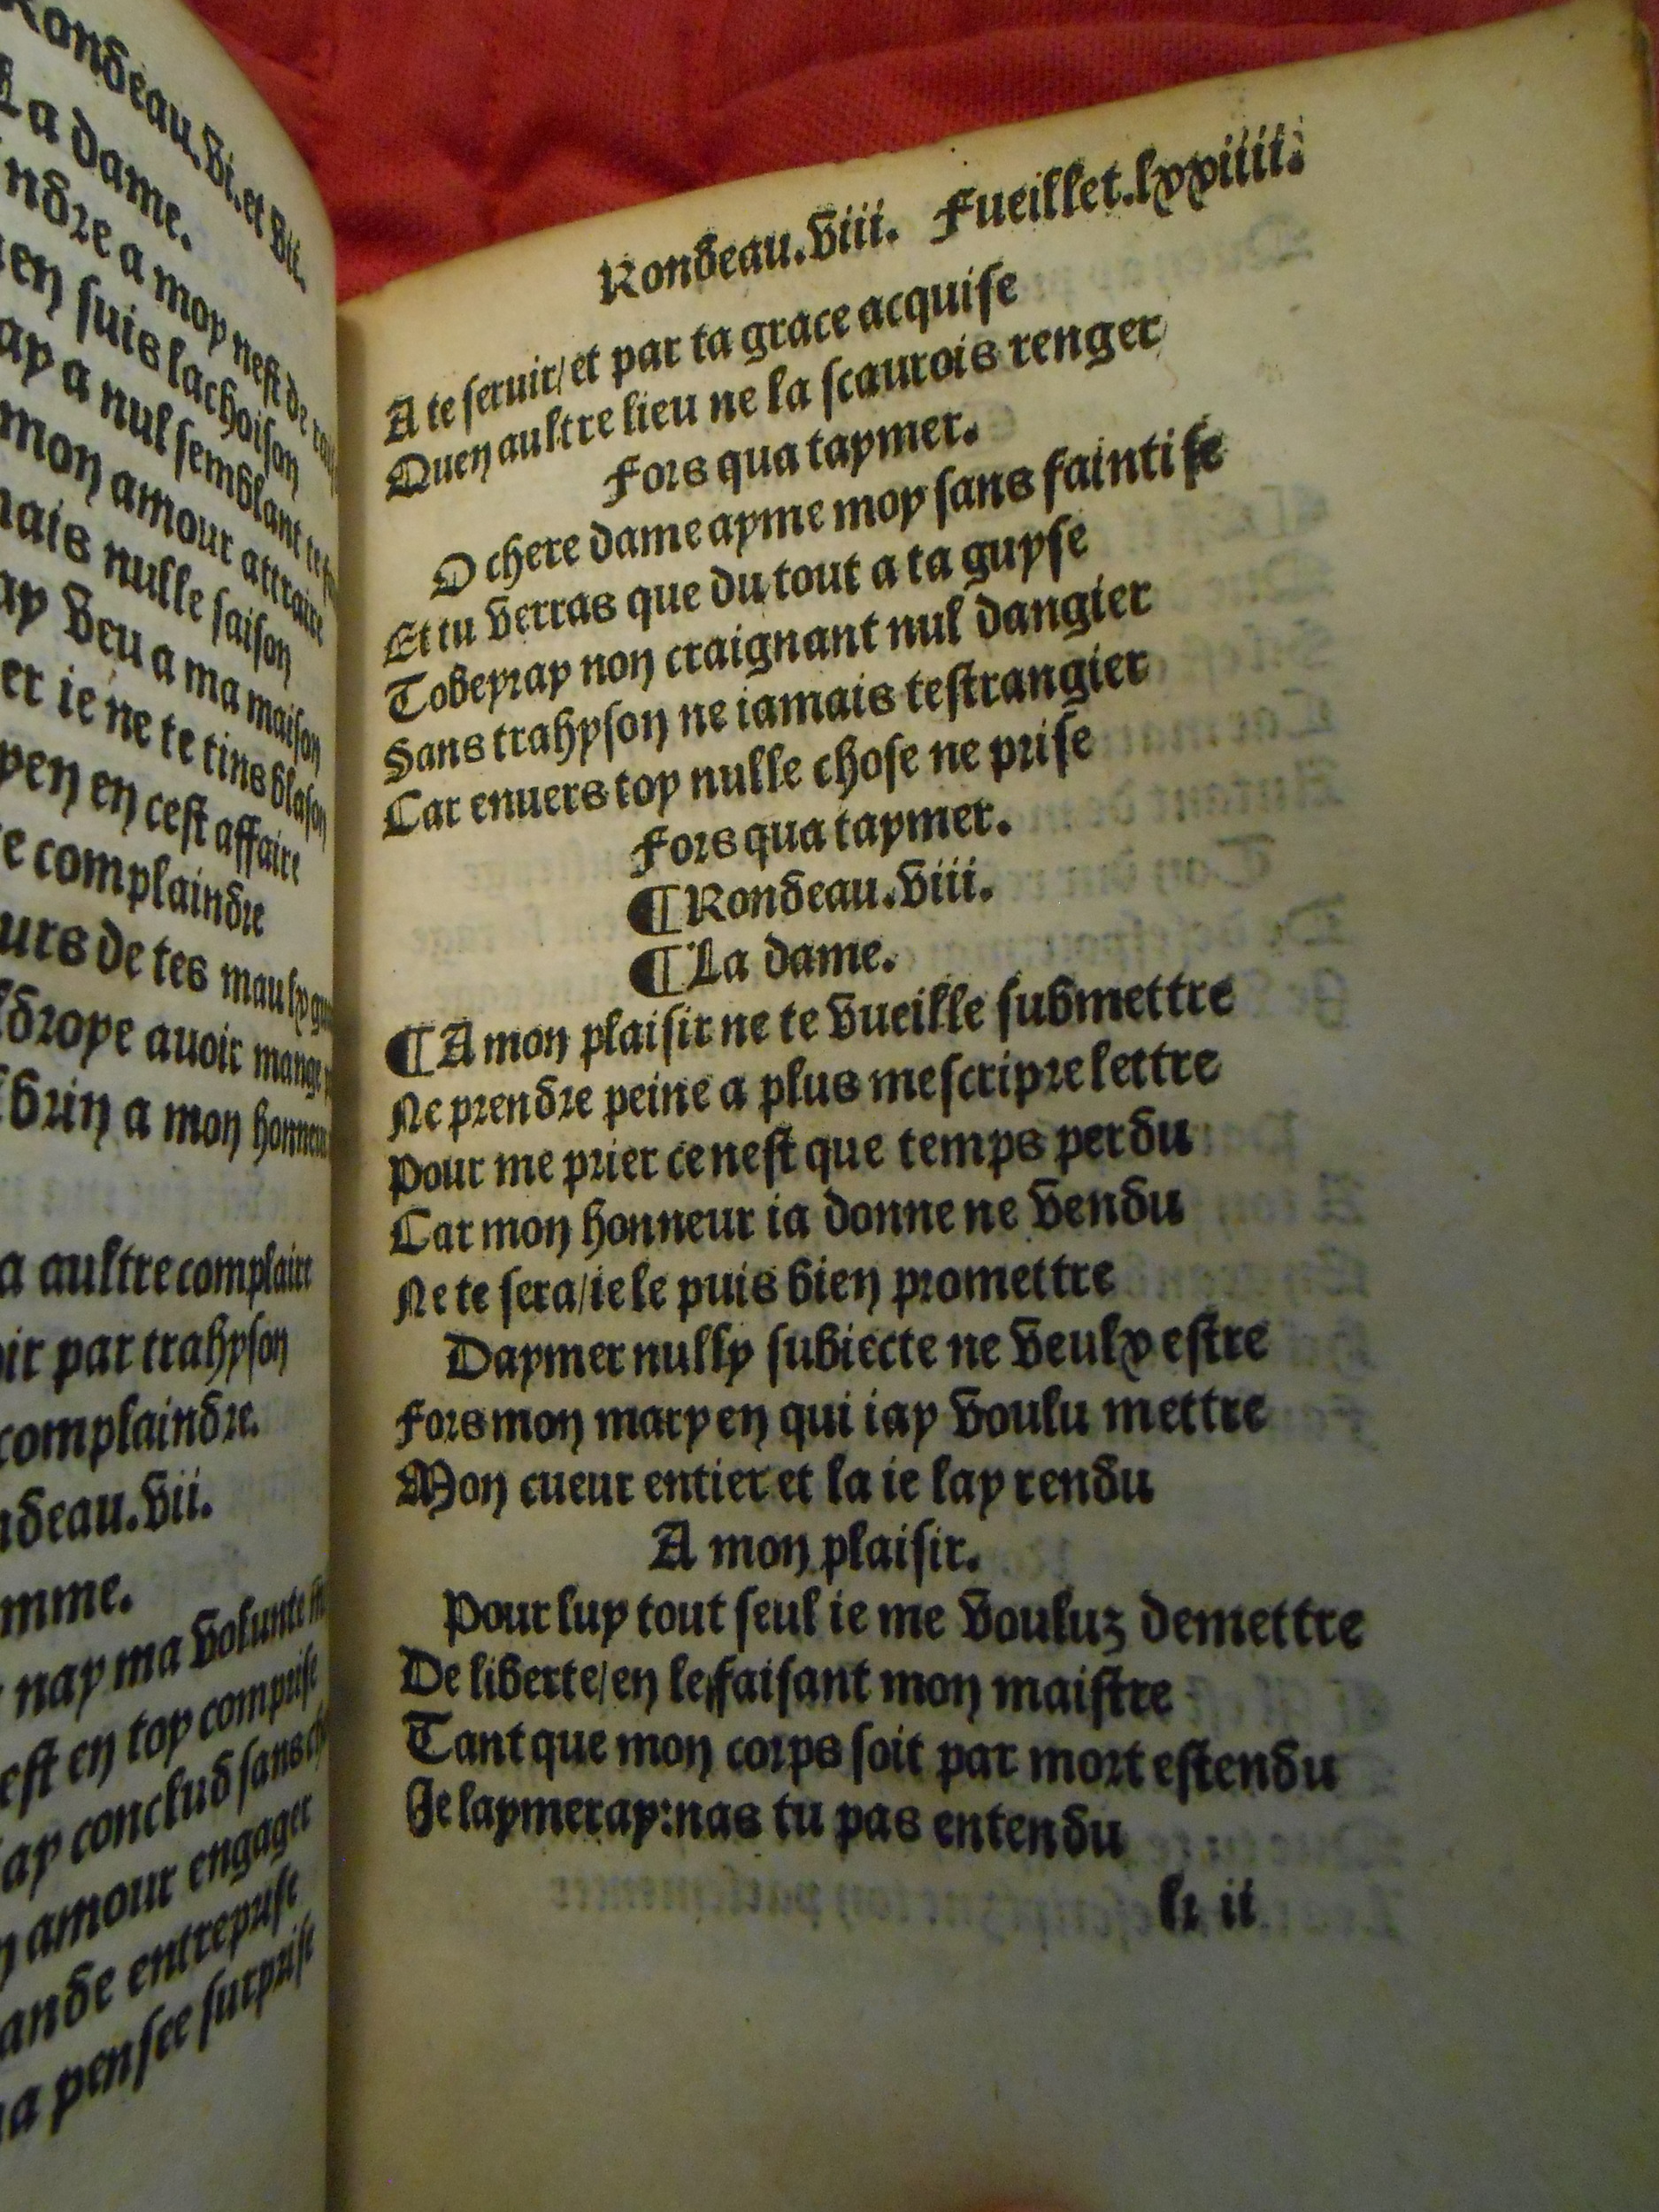 Rondeau.vi.et vii.
La dame.
ndre a moy nest de
en suis lachoison
ay a nul semblant
mon amour attraire
mais nulle saison
ay veu a ma maison
er ie ne te tins blason
yen en cest affaire
e complaindre
urs de tes maulx
ldrope auoir mange
brin a mon honneur
a aultre complaire
oir par trahyson
complaindre.
ndeau.vii.
mme.
nay ma volunte
est en toy comprise
ay conclud sans
n amour engager
ande entreprise
a pensee surprise
Rondeau.viii. Fueillet.lxxiiii.
A te seruir/et par ta grace acquise
Quen aultre lieu ne la scaurois renger
Fors qua taymer.
O chere dame ayme moy sans faintise
Et tu verras que du tout a ta guyse
Tobeyray non craignant nul dangier
Sans trahyson ne iamais testrangier
Car enuers toy nulle chose ne prise
Fors qua taymer.
¶Rondeau.viii.
¶La dame.
¶A mon plaisir ne te vueille submettre
Ne prendre peine a plus mescripre lettre
Pour me prier ce nest que temps perdu
Car mon honneur ia donne ne vendu
Ne te sera/ie le puis bien promettre
Daymer nully subiecte ne veulx estre
Fors mon mary en qui iay voulu mettre
Mon cueur entier et la ie lay rendu
A mon plaisir.
Pour luy tout seul ie me vouluz demettre
De liberte/en le faisant mon maistre
Tant que mon corps soit par mort estendu
Je laymeray:nas tu pas entendu
k ii